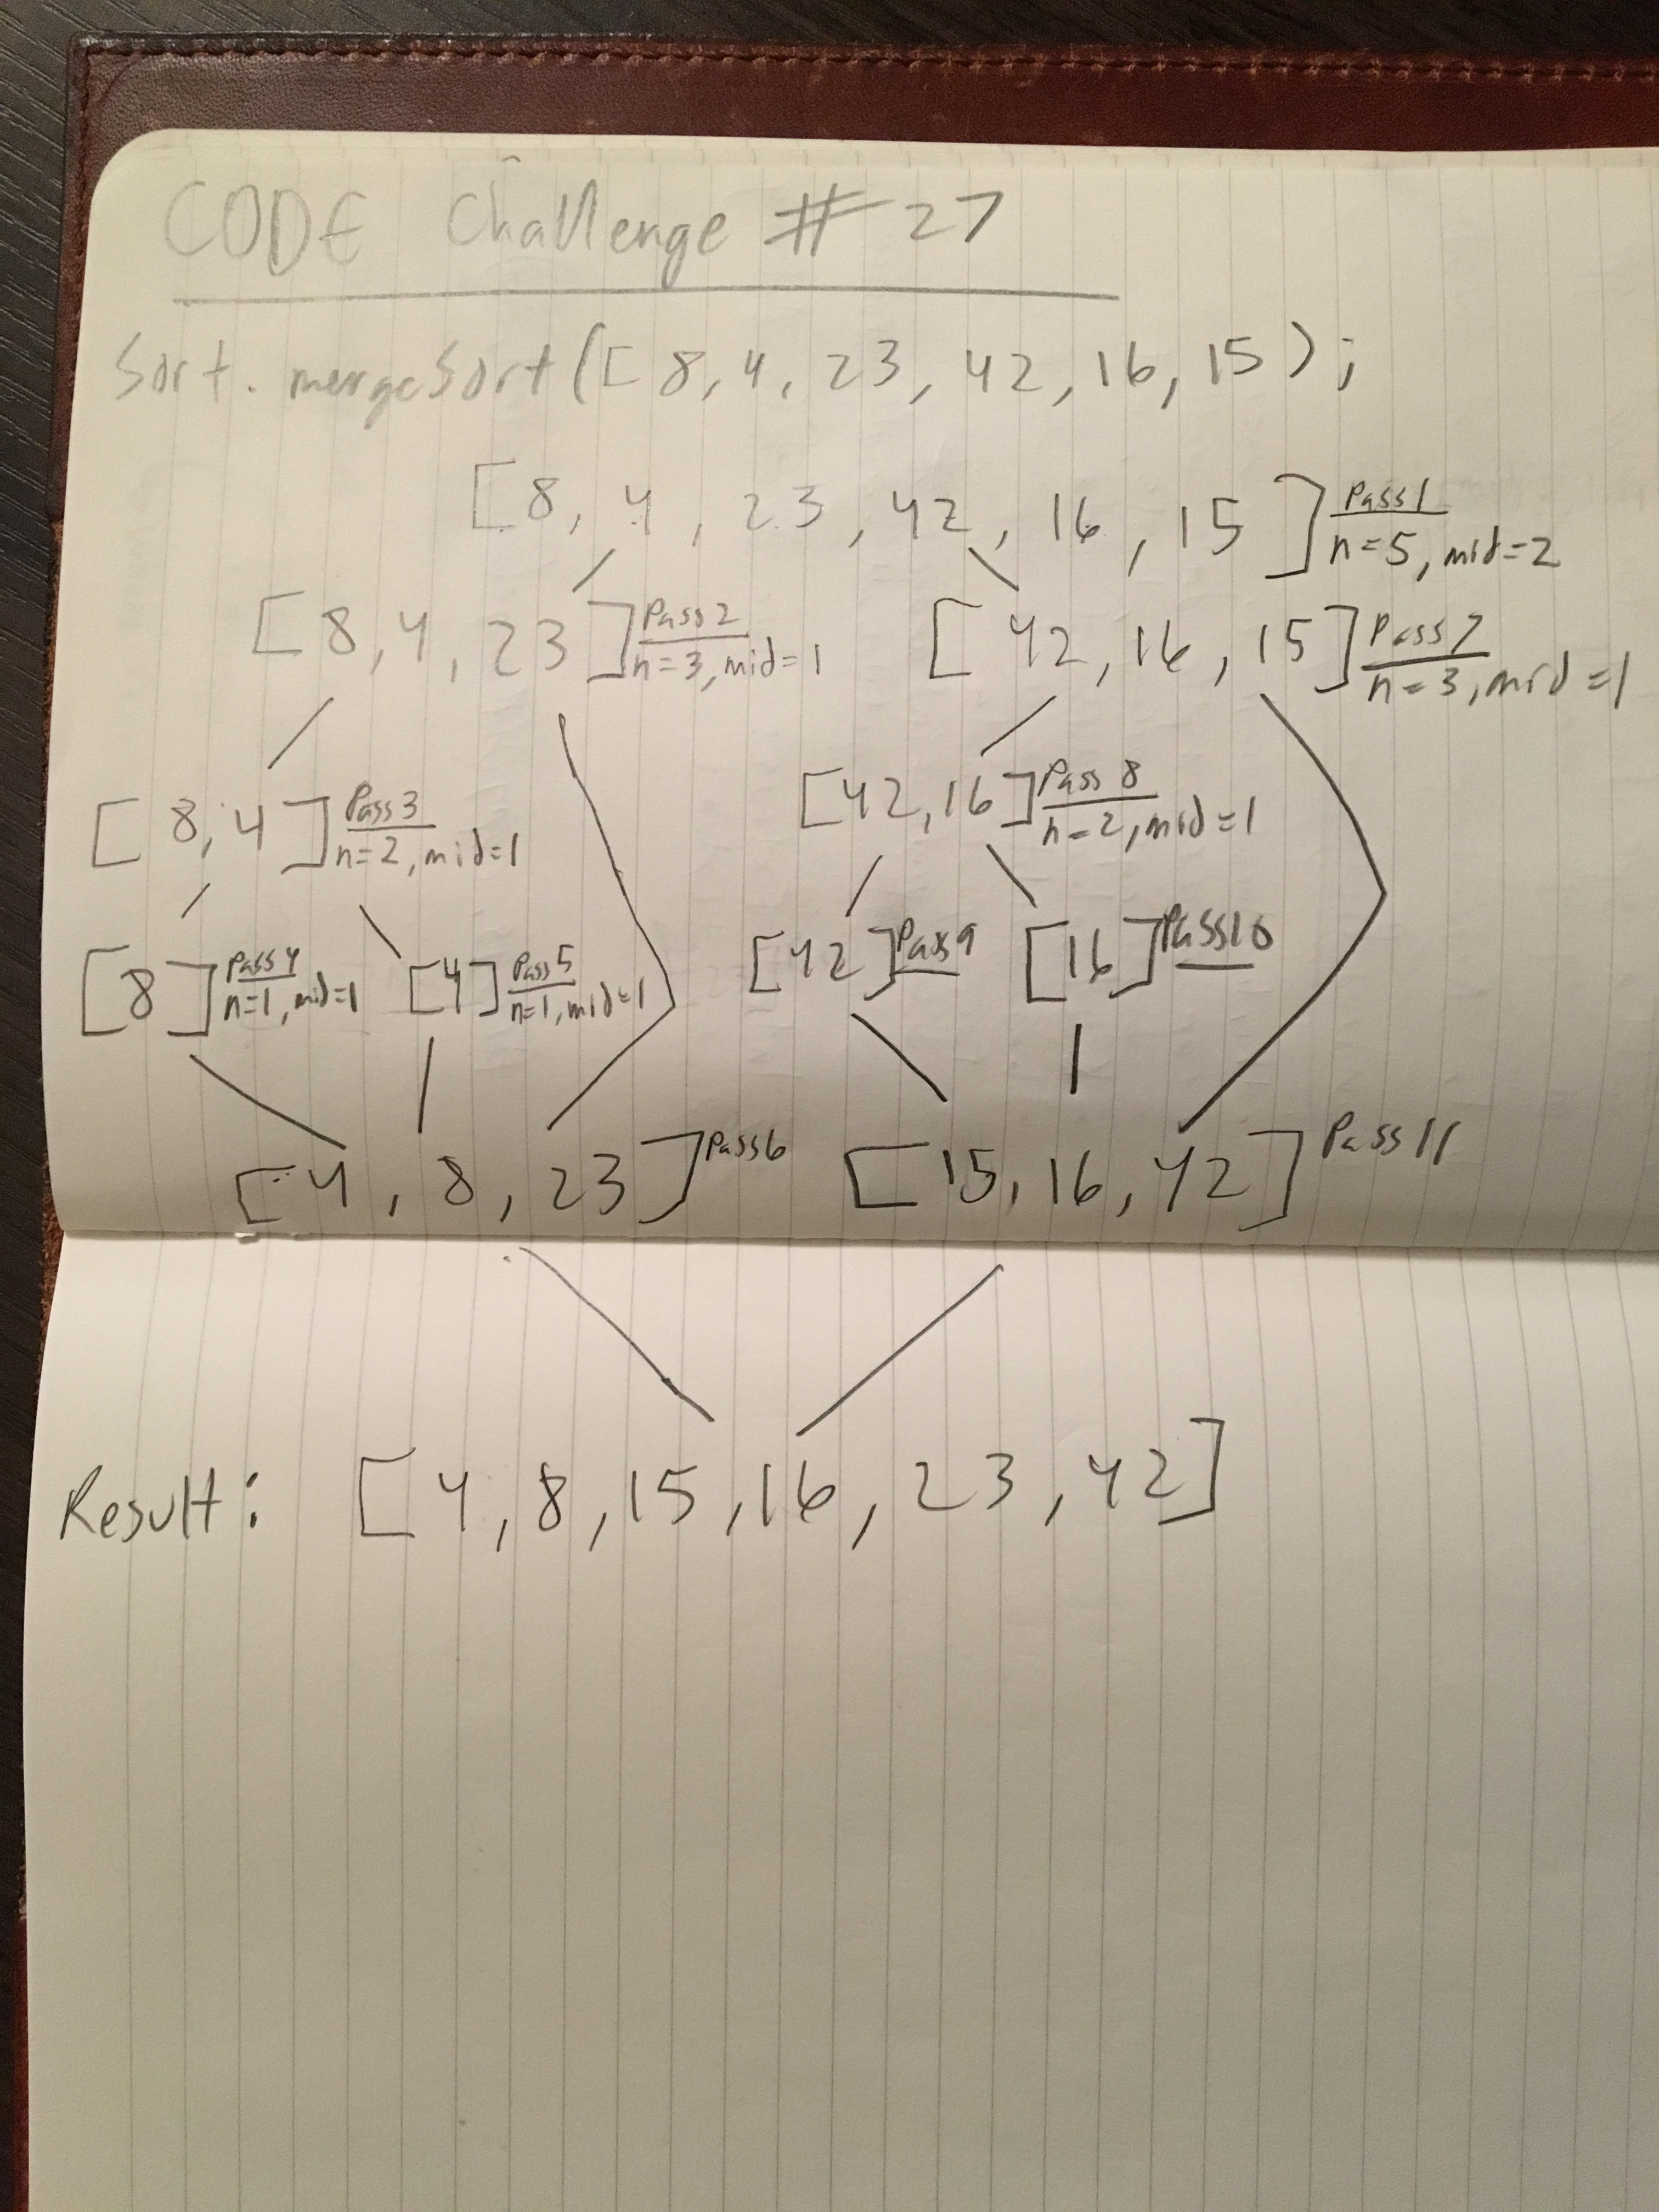 CODE Challenge # 27
Sort.mergeSort([8,4,23,42,16,15);
[8,4,23,42,16,15] Pass1
n=5, mid=2
[8,4,23] Pass2
n=3, mid=1
[42,16,15] Pass7
n=3, mid=1
[8,4] Pass3
n=2, mid=1
[42,16] Pass 8
n=2, mid=1
[8] Pass4
n=1, mid=1
[4] Pass5
n=1, mid=1
[42] Pass9
[16] Pass10
[4,8,23] Pass6
[15,16,42] Pass11
Result: [4,8,15,16,23,42]